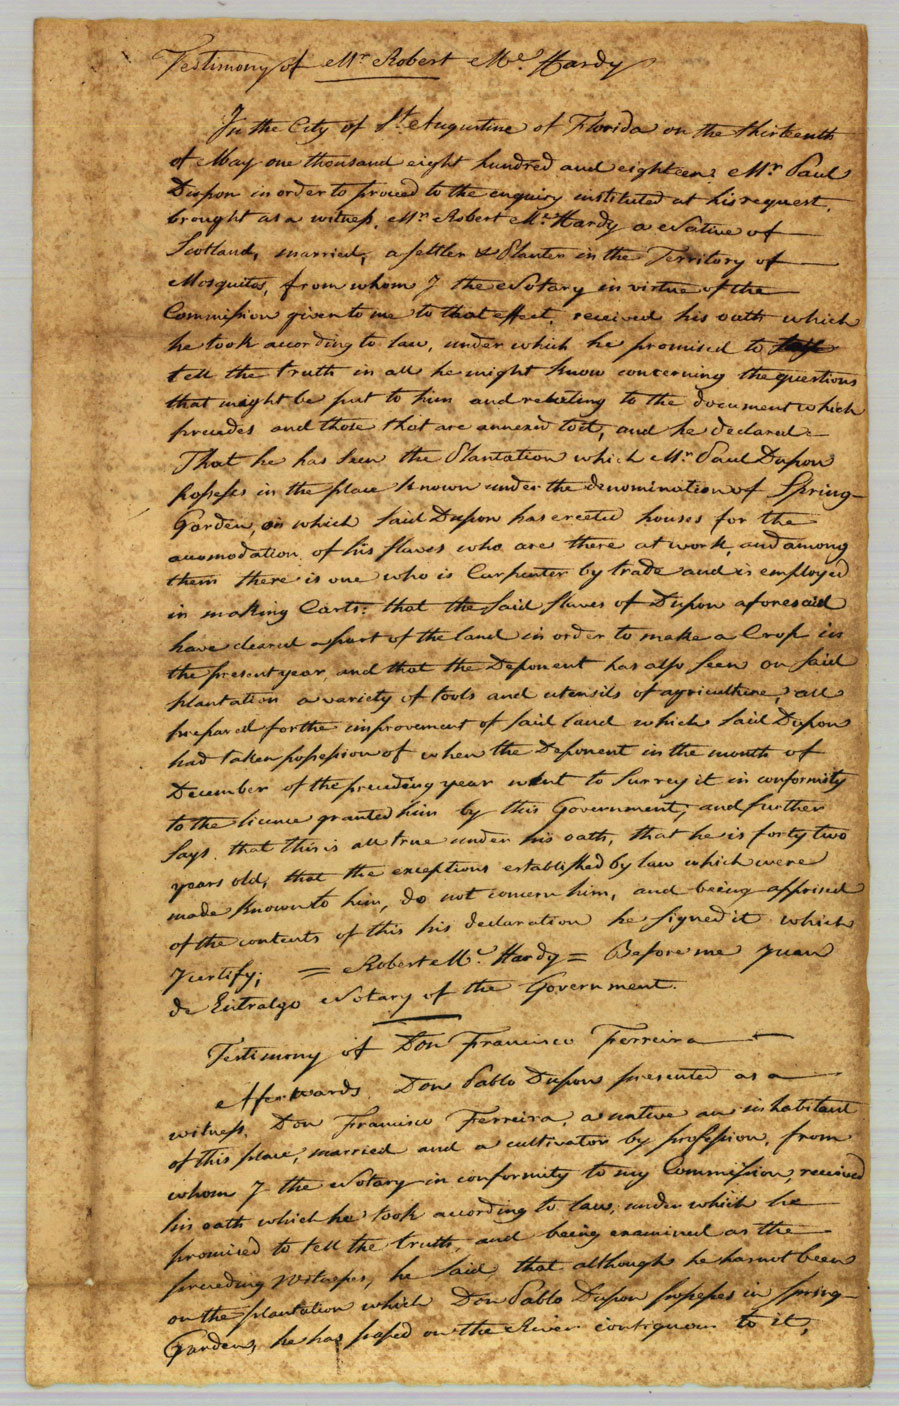 Testimony of Mr. Robert Mc. Hardy
In the City of St. Augustine of Florida on the thirteenth
of May one thousand eight hundred and eighteen: Mr. Paul
Dupon in order to proceed to the enquiry instituted at his request,
brought as a witness, Mr. Robert Mc. Hardy a Native of
Scotland, married, a settler & Planter in the Territory of
Mosquitos, from whom I the Notary in virtue of the
Commission given to me to that effect, received his oath which
he took according to law, under which he promised to
tell the truth in all he might know concerning the questions
that might be put to him and relating to the document which
precedes and those that are annexed to it, and he declared =
That he has seen the Plantation which Mr. Paul Dupon
possesses in the place known under the denomination of Spring-
Garden, on which said Dupon has erected houses for the
acomodation of his slaves who are there at work, and among
them there is one who is Carpenter by trade and is employed
in making Carts: that the said slaves of Dupon aforesaid
have cleared a part of the land in order to make a Crop in
the present year, and that the Deponent has also seen on said
plantation a variety of tools and utensils of agriculture, all
prepared for the improvement of said land which said Dupon
had taken possession of when the Deponent in the month of
December of the preceding year went to Survey it in conformity
to the licence granted him by this Government, and further
says that this is all true under his oath, that he is forty two
years old, that the exceptions established by law which were
made known to him, do not concern him, and being apprised
of the contents of this his declaration he signed it which
I certify; = Robert Mc. Hardy = Before me Juan
de Entralgo Notary of the Government.
Testimony of Don Francisco Ferreira
Afterwards Don Pablo Dupon presented as a
witness, Don Francisco Ferreira, a native an inhabitant
of this place, married and a cultivator by profession, from
whom I the Notary in conformity to my Commission, received
his oath which he took according to law, under which he
promised to tell the truth, and being examined as the
preceding Witnesses, he said, that although he has not been
on the plantation which Don Pablo Dupon possesses in Spring-
Garden, he has passed on the River contiguous to it,